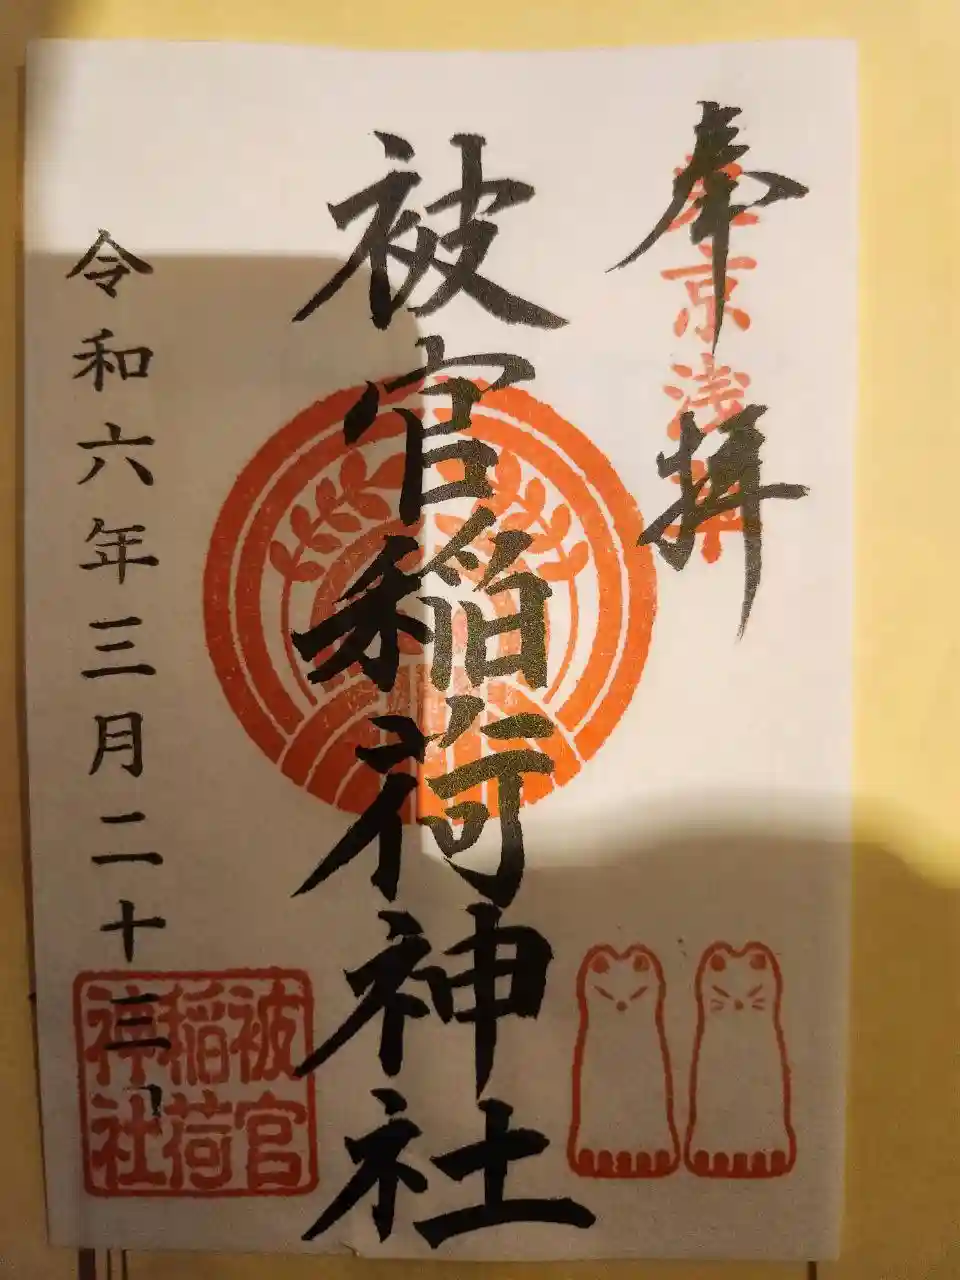 奉拝
東京浅草
被官稲荷神社
令和六年三月二十三日
被官
稲荷
神社